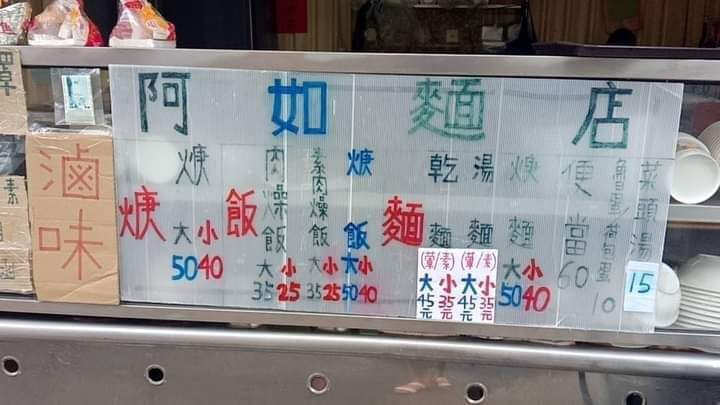 阿如麵店
滷味
焿
焿 大50 小40
飯
肉燥飯 大35 小25
素肉燥飯 大35 小25
焿飯 大50 小40
麵
乾麵 (葷/素) 大45元 小35元
湯麵 (葷/素) 大45元 小35元
焿麵 大50 小40
便當60
魯蛋/荷包蛋10
菜頭湯 15
素